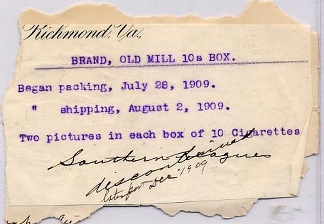 Richmond, Va.
BRAND, OLD MILL 10s BOX.
Began packing, July 28, 1909.
" shipping, August 2, 1909.
Two pictures in each box of 10 Cigarettes
Southern
discon Leagues
Dec 1909